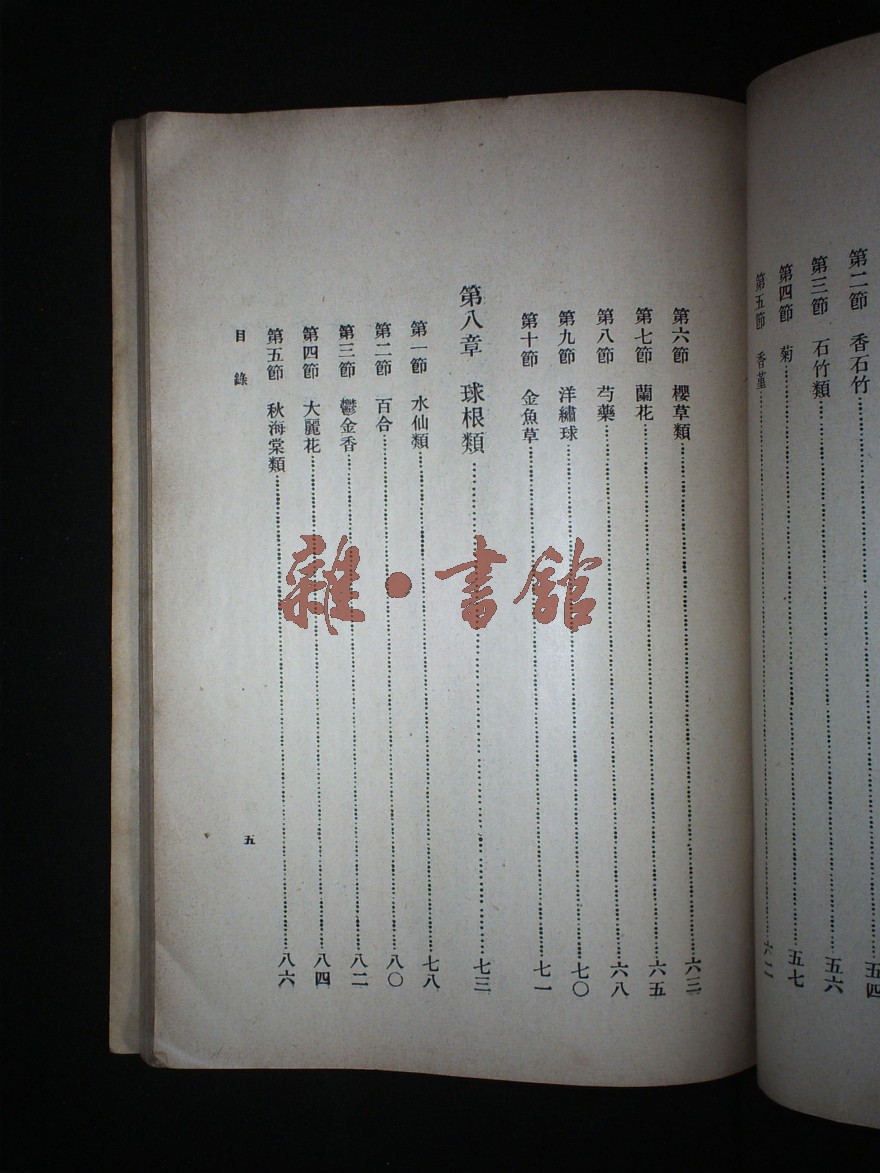 第二節　香石竹……五四
第三節　石竹類……五六
第四節　菊……五七
第五節　香堇……六二
第六節　櫻草類……六三
第七節　蘭花……六五
第八節　芍藥……六八
第九節　洋繡球……七〇
第十節　金魚草……七一
第八章　球根類……七三
第一節　水仙類……七八
第二節　百合……八〇
第三節　鬱金香……八二
第四節　大麗花……八四
第五節　秋海棠類……八六
目錄　五
雜·書館